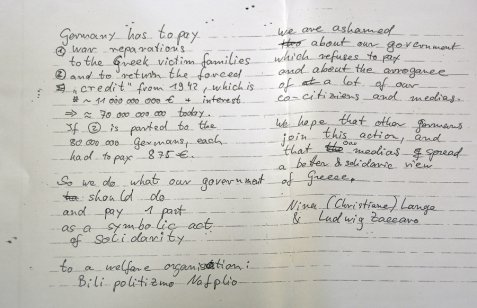 Germany has to pay
① war reparations
to the Greek victim families
② and to return the forced
"credit" from 1942, which is
~ 11 000 000 000 € + interest
⇒ ≈ 70 000 000 000 today.
If ② is parted to the
80 000 000 Germans, each
had to pay 875 €.
So we do what our government
should do
and pay 1 part
as a symbolic act
of solidarity
to a welfare organisation:
Bili politizmo Nafplio
we are ashamed
about our government
which refuses to pay
and about the arrogance
of a lot of our
co-citiziens and medias.
We hope that other germans
join this action, and
that our medias spread
a beter & solidaric view
of Greece.
Nina (Christiane) Lange
& Ludwig Zaccaro